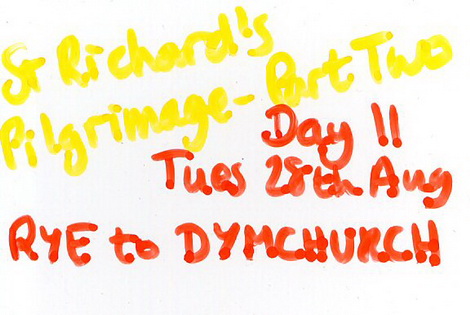 St Richard's
Pilgrimage - Part Two
Day !!
Tues 28th Aug
RYE to DYMCHURCH